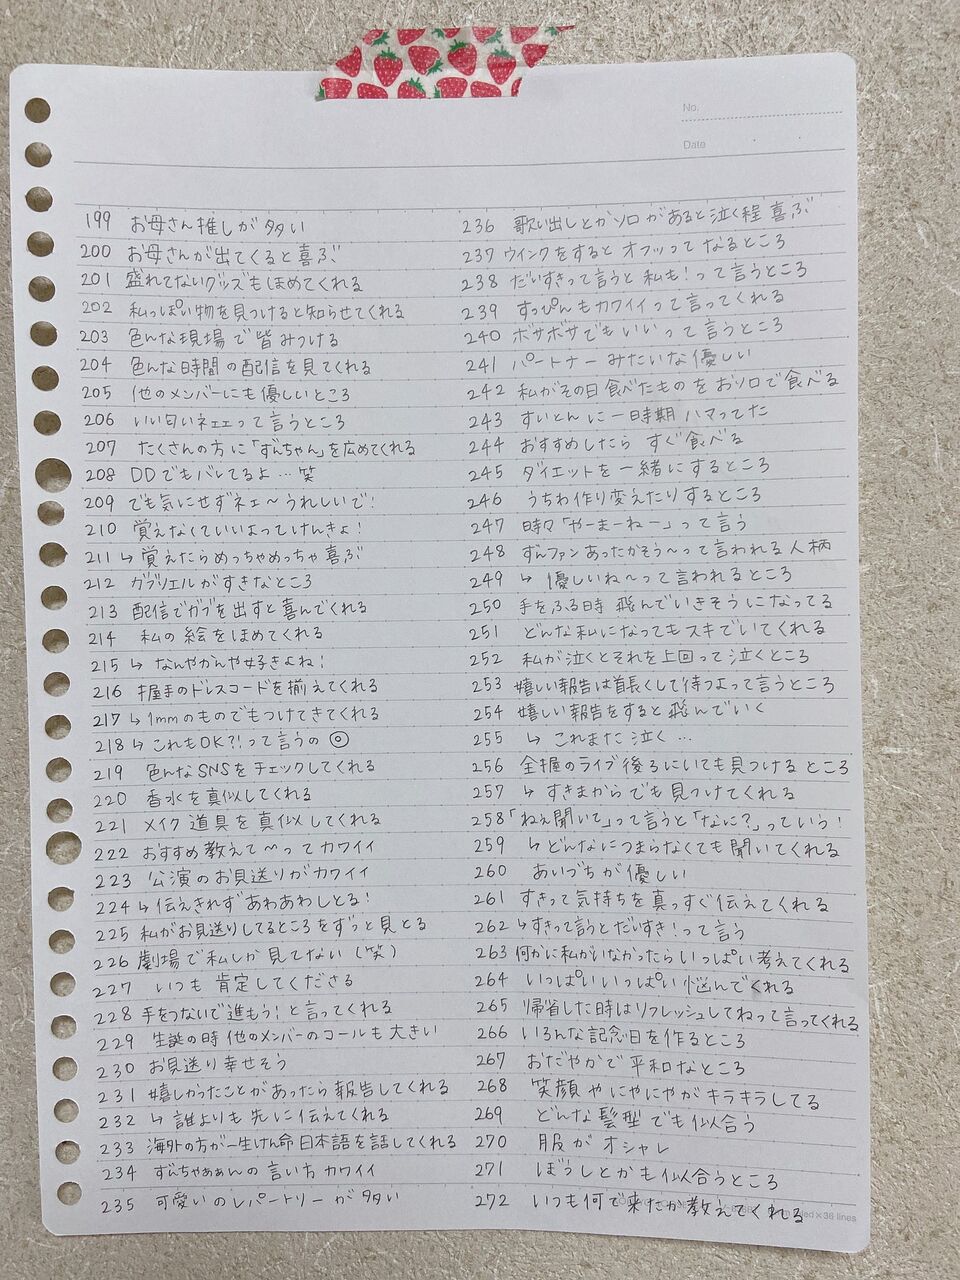 No.
Date
199 お母さん推しが多い
200 お母さんが出てくると喜ぶ
201 盛れてないグッズもほめてくれる
202 私っぽい物を見つけると知らせてくれる
203 色んな現場で皆みつける
204 色んな時間の配信を見てくれる
205 他のメンバーにも優しいところ
206 いい匂いネェェって言うところ
207 たくさんの方に「ずんちゃん」を広めてくれる
208 DDでもバレてるよ…笑
209 でも気にせずネェ〜うれしいで!
210 覚えなくていいよってけんきょ!
211 ↳ 覚えたらめっちゃめっちゃ喜ぶ
212 ガブリエルがすきなところ
213 配信でガブを出すと喜んでくれる
214 私の絵をほめてくれる
215 ↳ なんやかんや好きよね!
216 握手のドレスコードを揃えてくれる
217 ↳ 1mmのものでもつけてきてくれる
218 ↳ これもOK?!って言うの◎
219 色んなSNSをチェックしてくれる
220 香水を真似してくれる
221 メイク道具を真似してくれる
222 おすすめ教えて〜ってカワイイ
223 公演のお見送りがカワイイ
224 ↳ 伝えきれずあわあわしとる!
225 私がお見送りしてるところをずっと見とる
226 劇場で私しか見てない(笑)
227 いつも肯定してくださる
228 手をつないで進もう!と言ってくれる
229 生誕の時他のメンバーのコールも大きい
230 お見送り幸せそう
231 嬉しかったことがあったら報告してくれる
232 ↳ 誰よりも先に伝えてくれる
233 海外の方が一生けん命日本語を話してくれる
234 ずんちゃぁぁんの言い方カワイイ
235 可愛いのレパートリーが多い
236 歌い出しとかソロがあると泣く程喜ぶ
237 ウインクをするとオフッってなるところ
238 だいすきって言うと私も!って言うところ
239 すっぴんもカワイイって言ってくれる
240 ボサボサでもいいって言うところ
241 パートナーみたいな優しい
242 私がその日食べたものをおソロで食べる
243 すいとんに一時期ハマってた
244 おすすめしたらすぐ食べる
245 ダイエットを一緒にするところ
246 うちわ作り変えたりするところ
247 時々「やーまーねー」って言う
248 ずんファンあったかそう〜って言われる人柄
249 ↳ 優しいね〜って言われるところ
250 手をふる時飛んでいきそうになってる
251 どんな私になってもスキでいてくれる
252 私が泣くとそれを上回って泣くところ
253 嬉しい報告は首長くして待つよって言うところ
254 嬉しい報告をすると飛んでいく
255 ↳ これまた泣く…
256 全握のライブ後ろにいても見つけるところ
257 ↳ すきまからでも見つけてくれる
258 「ねぇ聞いて」って言うと「なに?」っていう!
259 ↳ どんなにつまらなくても聞いてくれる
260 あいづちが優しい
261 すきって気持ちを真っすぐ伝えてくれる
262 ↳ すきって言うとだいすき!って言う
263 何かに私がいなかったらいっぱい考えてくれる
264 いっぱいいっぱい悩んでくれる
265 帰省した時はリフレッシュしてねって言ってくれる
266 いろんな記念日を作るところ
267 おだやかで平和なところ
268 笑顔やにやにやがキラキラしてる
269 どんな髪型でも似合う
270 服がオシャレ
271 ぼうしとかも似合うところ
272 いつも何で来たか教えてくれる
×36 lines